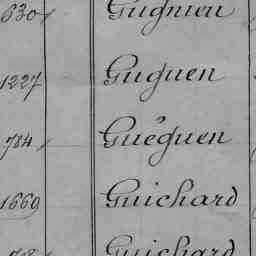 630 Gugnieu
1227 Guguen
784 Guéguen
1669 Guichard
Guichard